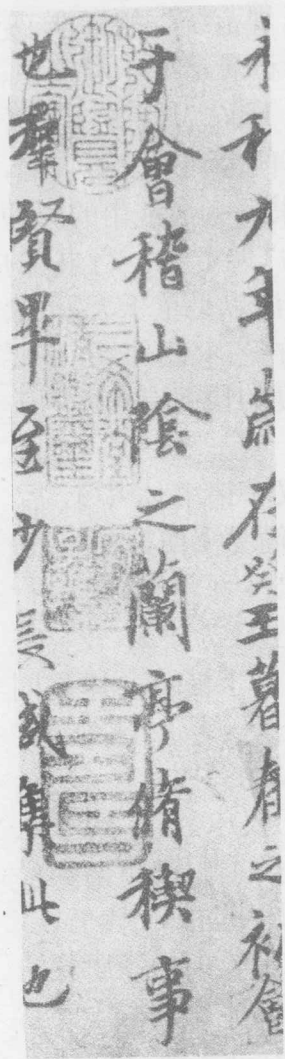 永和九年歲在癸丑暮春之初會
于會稽山陰之蘭亭脩稧事
也羣賢畢至少長咸集此地